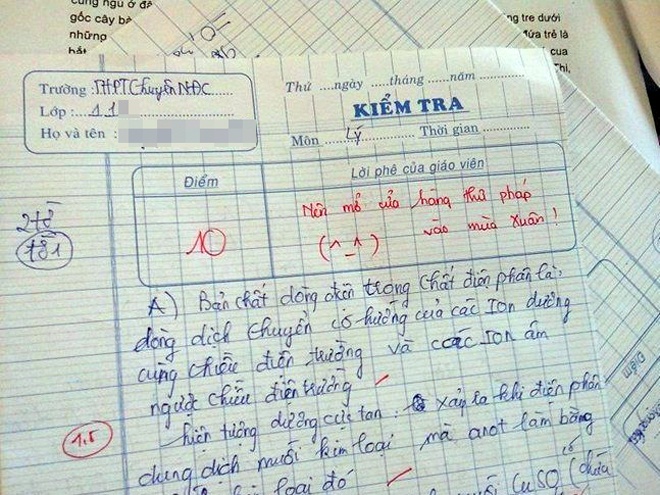 cũng ngủ ở đâ
gốc cây bà
những
hắt
ng tre dưới
đứa trẻ là
cua
Thi,
10
Trường : THPT Chuyên NĐC
Lớp : 11
Họ và tên :
Thứ ....ngày ......tháng ......năm
KIỂM TRA
Môn Lý Thời gian
Điểm
Lời phê của giáo viên
10
Nên mở cửa hàng thư pháp
vào mùa Xuân !
(^_^)
2 tờ
181
A) Bản chất dòng điện trong chất điện phân là,
dòng dịch chuyển có hướng của các Ion dương
cùng chiều điện trường và các Ion âm
ngược chiều điện trường
1.5
hiện tượng dương cực tan : xảy ra khi điện phân
dung dịch muối kim loại mà anot làm bằng
loại đó
muối CuSO
Điểm